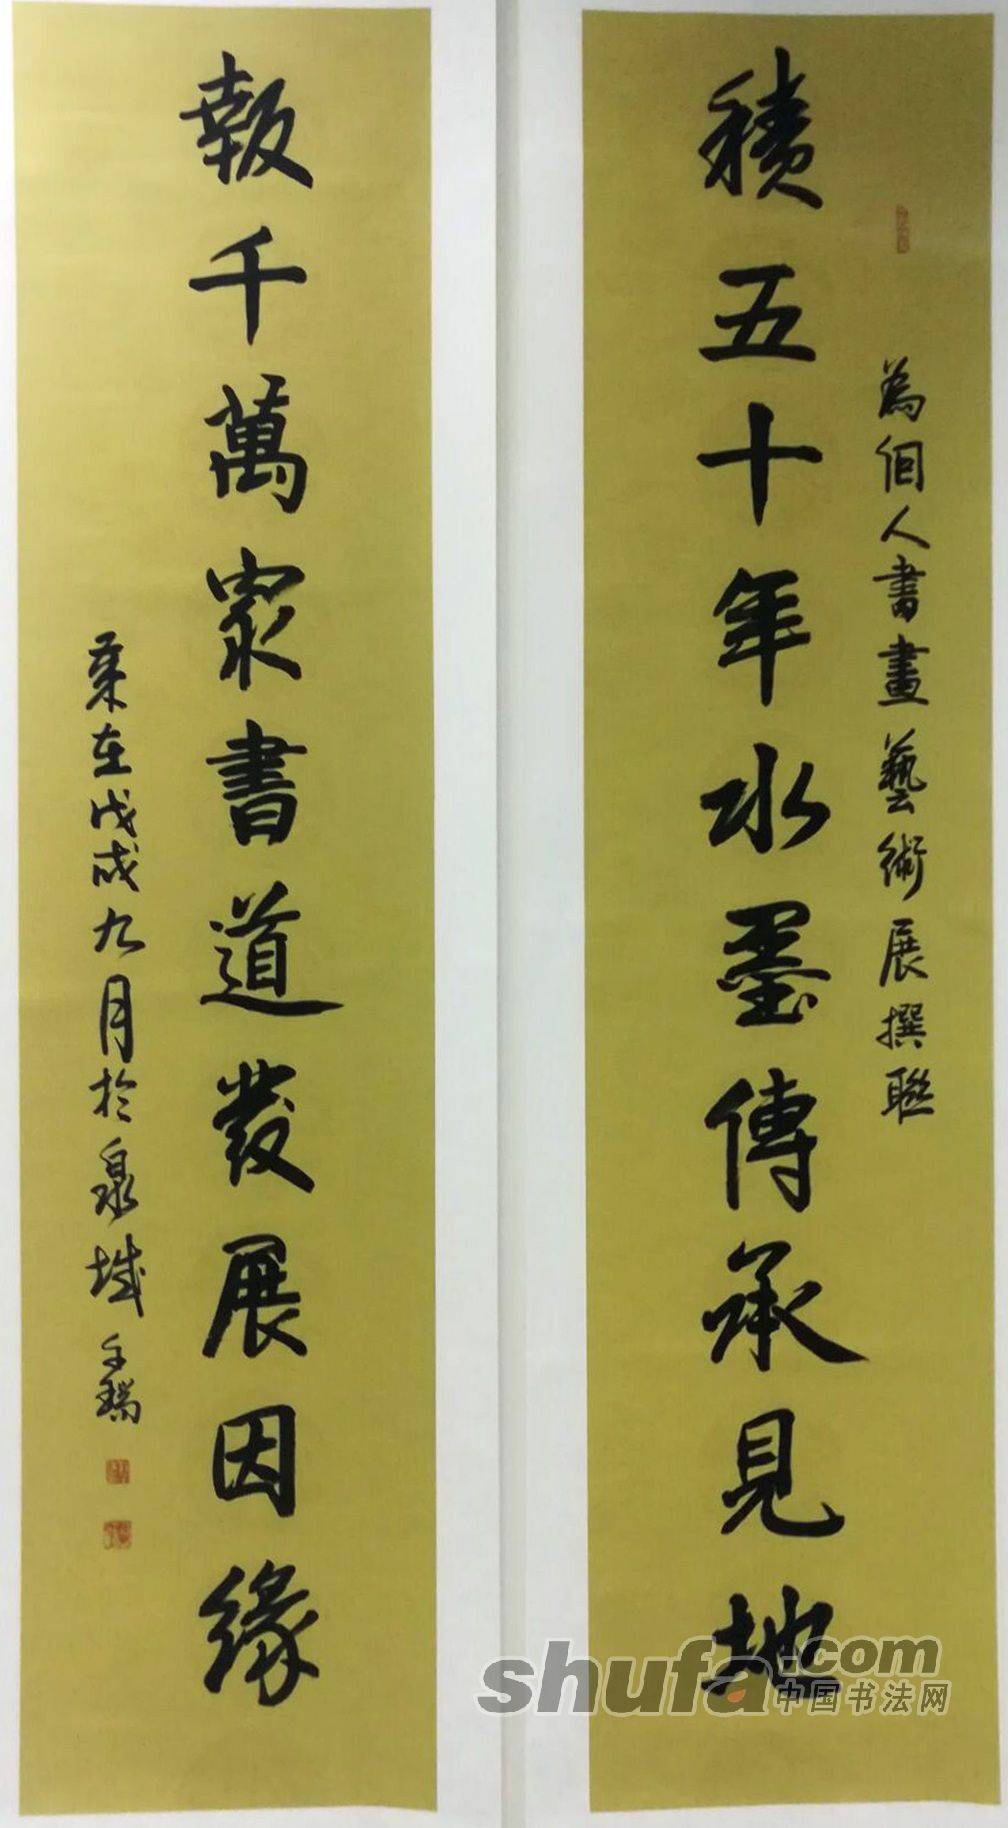 為個人書畫藝術展撰聯
積五十年水墨傳承見地
報千萬家書道發展因緣
歲在戊戌九月於泉城
shufa.com
中国书法网